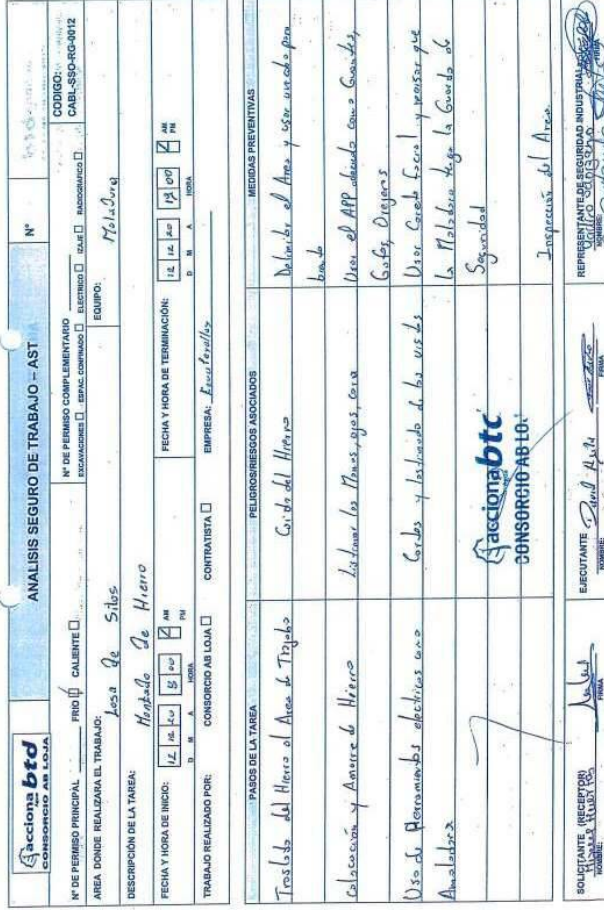 acciona btd
CONSORCIO AB LOJA
ANALISIS SEGURO DE TRABAJO – AST
Nº
CODIGO:
CABL-SSO-RG-0012
Nº DE PERMISO PRINCIPAL FRIO CALIENTE
Nº DE PERMISO COMPLEMENTARIO
EXCAVACIONES ESPAC. CONFINADO ELECTRICO IZAJE RADIOGRAFICO
AREA DONDE REALIZARA EL TRABAJO:
Losa de Silos
EQUIPO:
DESCRIPCIÓN DE LA TAREA:
Montado de Hierro
FECHA Y HORA DE INICIO: 12 12 20 8 00 AM PM
D M A HORA
FECHA Y HORA DE TERMINACIÓN: 12 12 20 00 AM PM
D M A HORA
TRABAJO REALIZADO POR: CONSORCIO AB LOJA CONTRATISTA EMPRESA:
PASOS DE LA TAREA
PELIGROS/RIESGOS ASOCIADOS
MEDIDAS PREVENTIVAS
Traslado del Hierro al Area de Trabajo
Caida del Hierro
Delimitar el Area y usar
Colocación y Amarre de Hierro
Manos, ojos, cara
Usar el APP como Guantes,
Gafas, Orejeras
Uso de Herramientas electricas como
Amoladora
Cortes y de las
Usar Careta Facial y revisar que
la Moladora tega la Guarda de
Seguridad
Inspección del Area
acciona btd
CONSORCIO AB LO.
SOLICITANTE (RECEPTOR)
NOMBRE: FIRMA
EJECUTANTE David
NOMBRE: FIRMA
REPRESENTANTE DE SEGURIDAD INDUSTRIAL
NOMBRE: FIRMA